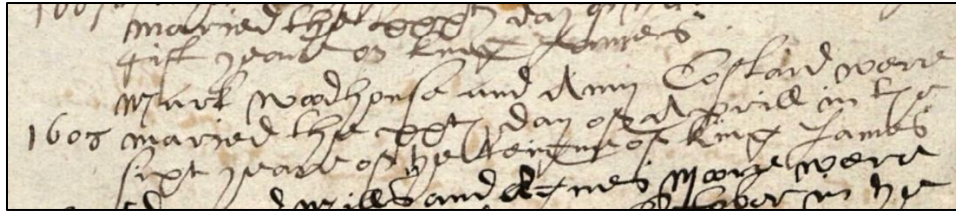 maried the xxxth day of
fift yeare of king James
Mark Woodhouse and Amy Costard were
1608 maried the xxth day of Aprill in the
sixt yeare of the Reigne of king James
Mills and Agnes Moore were
in the